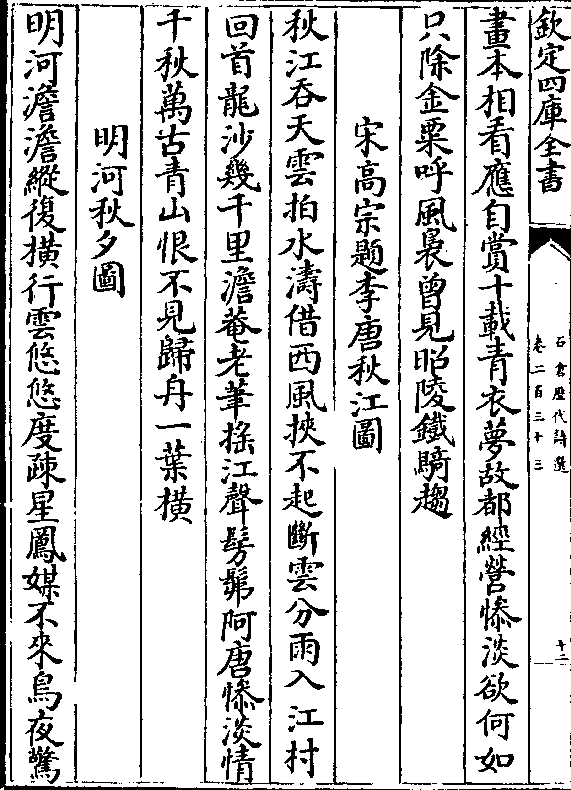 欽定四庫全書
石倉歷代詩選
卷二百三十三
十二
畫本相看應自賞十載青衣夢故都經營慘淡欲何如
只除金粟呼風裊曾見昭陵鐵騎趨
宋高宗題李唐秋江圖
秋江吞天雲拍水濤借西風挾不起斷雲分雨入江村
回首龍沙幾千里澹菴老筆摇江聲髣髴阿唐慘淡情
千秋萬古青山恨不見歸舟一葉橫
明河秋夕圖
明河澹澹縱復横行雲悠悠度疎星鳳媒不來烏夜驚